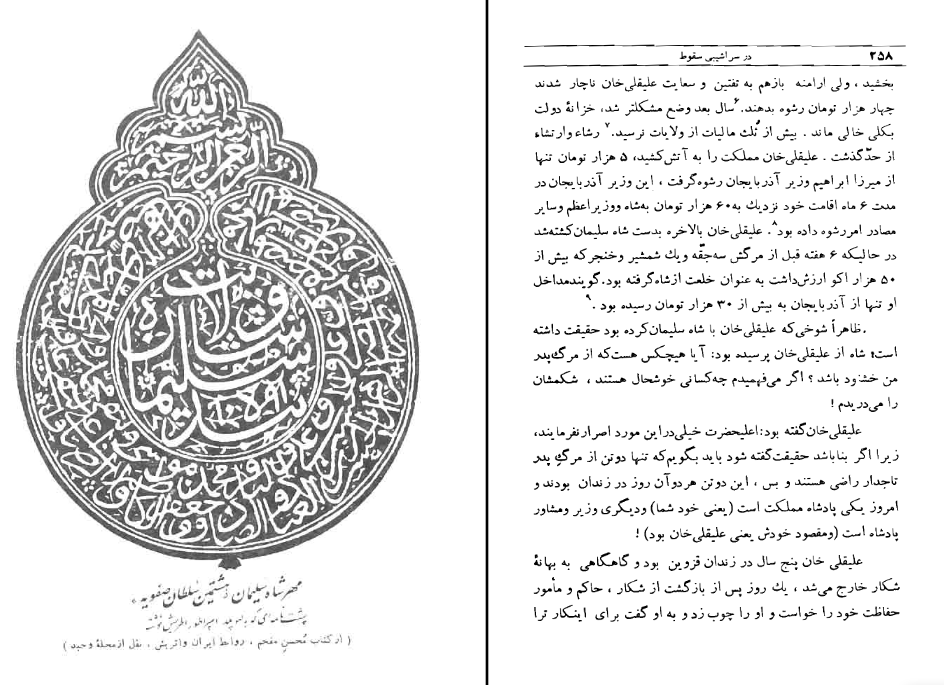 ۲۵۸
در سراشیبی سقوط
بخشید ، ولی ارامنه بازهم به تفتین و سعایت علیقلی‌خان ناچار شدند
چهار هزار تومان رشوه بدهند.۶ سال بعد وضع مشکلتر شد، خزانهٔ دولت
بکلی خالی ماند . بیش از ثلث مالیات از ولایات نرسید.۷ رشاء وارتشاء
از حدّگذشت . علیقلی‌خان مملکت را به آتش‌کشید، ۵ هزار تومان تنها
از میرزا ابراهیم وزیر آذربایجان رشوه‌گرفت ، این وزیر آذربایجان در
مدت ۶ ماه اقامت خود نزدیك به ۶۰ هزار تومان به‌شاه ووزیراعظم وسایر
مصادر امررشوه داده بود۸. علیقلی‌خان بالاخره بدست شاه سلیمان‌کشته‌شد
در حالیکه ۶ هفته قبل از مرگش سه‌جقّه ویك شمشیر وخنجرکه بیش از
۵۰ هزار اکو ارزش‌داشت به عنوان خلعت ازشاه‌گرفته بود.گویندمداخل
او تنها از آذربایجان به بیش از ۳۰ هزار تومان رسیده بود .۹
ظاهراً شوخی‌که علیقلی‌خان با شاه سلیمان‌کرده بود حقیقت داشته
است؛ شاه از علیقلی‌خان پرسیده بود: آیا هیچکس هست‌که از مرگ‌پدر
من خشنود باشد ؟ اگر می‌فهمیدم چه‌کسانی خوشحال هستند ، شکمشان
را می‌دریدم !
علیقلی‌خان‌گفته بود:اعلیحضرت خیلی‌دراین مورد اصرارنفرمایند،
زیرا اگر بناباشد حقیقت‌گفته شود باید بگویم‌که تنها دوتن از مرگ پدر
تاجدار راضی هستند و بس ، این دوتن هردوآن روز در زندان بودند و
امروز یکی پادشاه مملکت است (یعنی خود شما) ودیگری وزیر ومشاور
پادشاه است (ومقصود خودش یعنی علیقلی‌خان بود) !
علیقلی خان پنج سال در زندان قزوین بود و گاهگاهی به بهانهٔ
شکار خارج می‌شد ، یك روز پس از بازگشت از شکار ، حاکم و مأمور
حفاظت خود را خواست و او را چوب زد و به او گفت برای اینکار ترا
الله
بسم
الرحمن الرحیم
مهر شاه سلیمان هشتمین سلطان صفویه
پشت نامه‌ای که به لئوپلد امپراطور اطریش نوشته
( از کتاب محسن مفخم ، روابط ایران واتریش ، نقل ازمجلهٔ وحید )